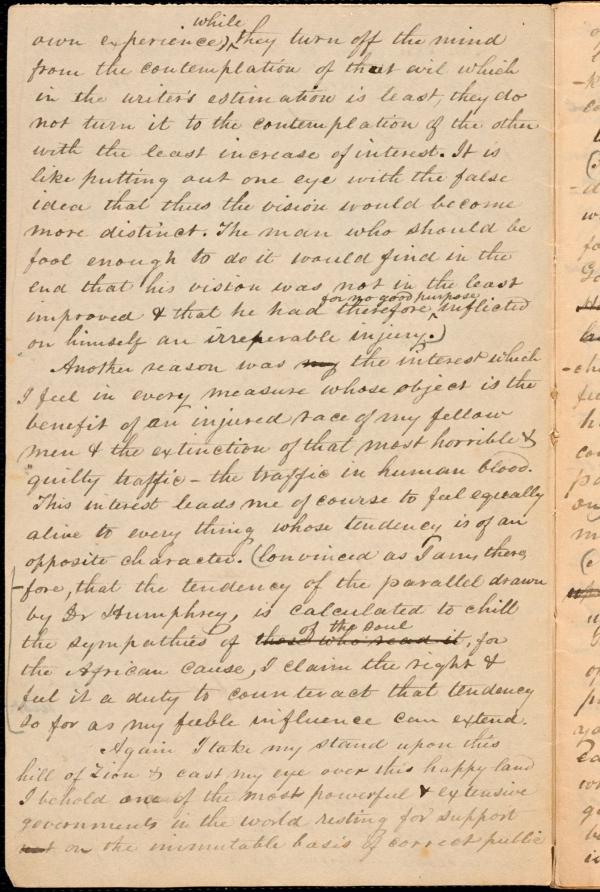 while
own experience), they turn off the mind
from the contemplation of that evil which
in the writer's estimation is least, they do
not turn it to the contemplation of the other
with the least increase of interest. It is
like putting out one eye with the false
idea that thus the vision would become
more distinct. The man who should be
fool enough to do it would find in the
end that his vision was not in the least
for no good purpose
improved & that he had therefore inflicted
on himself an irreperable injury.)
Another reason was my the interest which
I feel in every measure whose object is the
benefit of an injured race of my fellow
men & the extinction of that most horrible &
guilty traffic - the traffic in human blood.
This interest leads me of course to feel equally
alive to every thing whose tendency is of an
opposite character. (Convinced as I am, there
fore, that the tendency of the parallel drawn
by Dr Humphrey, is calculated to chill
of the soul
the sympathies of those who read it, for
the African cause, I claim the right &
feel it a duty to counteract that tendency
so far as my feeble influence can extend.
Again I take my stand upon this
hill of Zion & cast my eye over this happy land
I behold one of the most powerful & extensive
governments in the world resting for support
not on the immutable basis of correct public